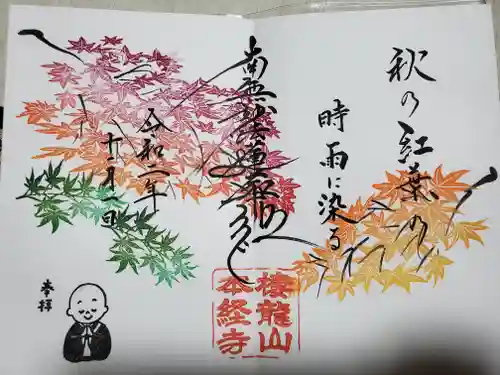 秋の紅葉の
時雨に染る
南無妙法蓮華経
令和二年
十二月一日
奉拝
棲龍山
本経寺